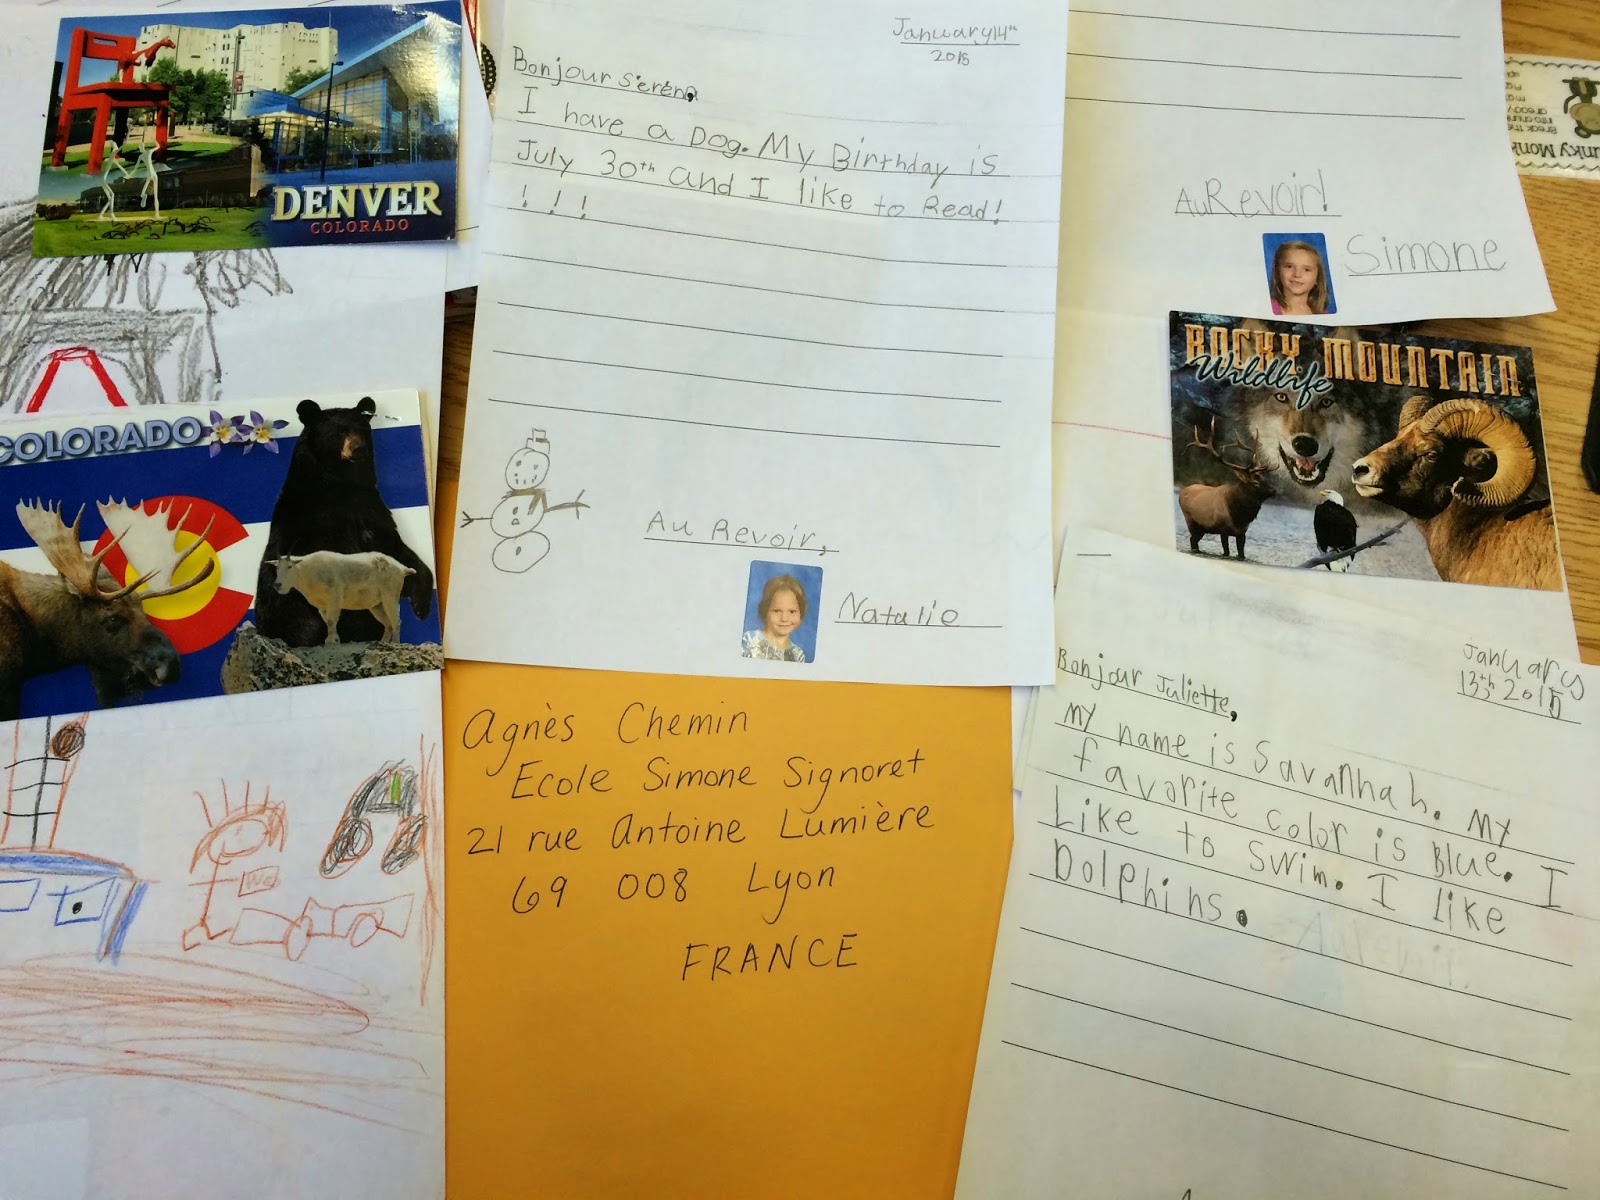 DENVER
COLORADO
COLORADO
January 14th
2015
Bonjour Serena,
I have a Dog. My Birthday is
July 30th and I like to Read!
! ! !
Au Revoir,
Natalie
Au Revoir!
Simone
ROCKY MOUNTAIN
Wildlife
Agnès Chemin
Ecole Simone Signoret
21 rue Antoine Lumière
69 008 Lyon
FRANCE
January
13th 2015
Bonjour Juliette,
My name is Savannah. My
favorite color is Blue. I
Like to Swim. I like
Dolphins.
Au revoir!
We